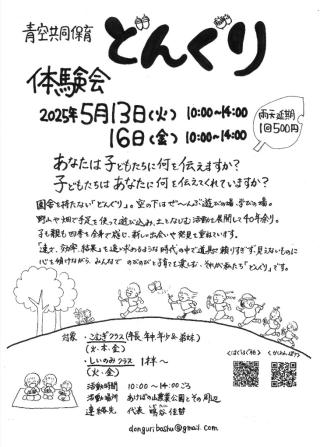 青空共同保育
どんぐり
体験会
2025年5月13日(火) 10:00~14:00
16日(金) 10:00~14:00
雨天延期
1回500円
あなたは子どもたちに何を伝えますか?
子どもたちはあなたに何を伝えてくれていますか?
園舎を持たない「どんぐり」。空の下はぜ〜んぶ遊びの場・学びの場。
野山や畑で手足を使って遊び込み、土となじむ活動を展開して40年余り。
子も親も四季を全身で感じ、新しい出会いや発見を重ねています。
「速さ、効率、結果」を追い求めるような時代の中で道具に頼りすぎず、見えないものに
心を傾けながら、みんなでのびのびと子育てを楽しむ、それが私たち「どんぐり」です。
対象・こむぎクラス(年長 年中 年少&弟妹)
(火・木・金)
・しいのみクラス 1才〜
(火・金)
活動時間 10:00〜14:00ごろ
活動場所 あけぼの山農業公園とその周辺
連絡先 代表
donguribashu@gmail.com